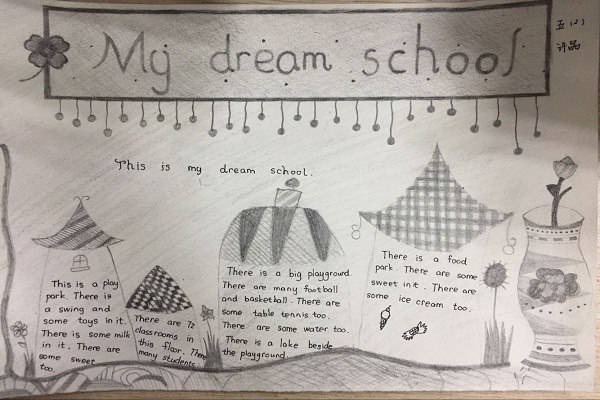 My dream school
五(2)
许晶
This is my dream school.
This is a play
park. There is
a swing and
some toys in it.
There is some milk
in it. There are
some sweet
too.
There are 72
classrooms in
this floor. There
many students
There is a big playground.
There are many football
and basketball. There are
some table tennis too.
There are some water too.
There is a lake beside
the playground.
There is a food
park. There are some
sweet in it. There are
some ice cream too.